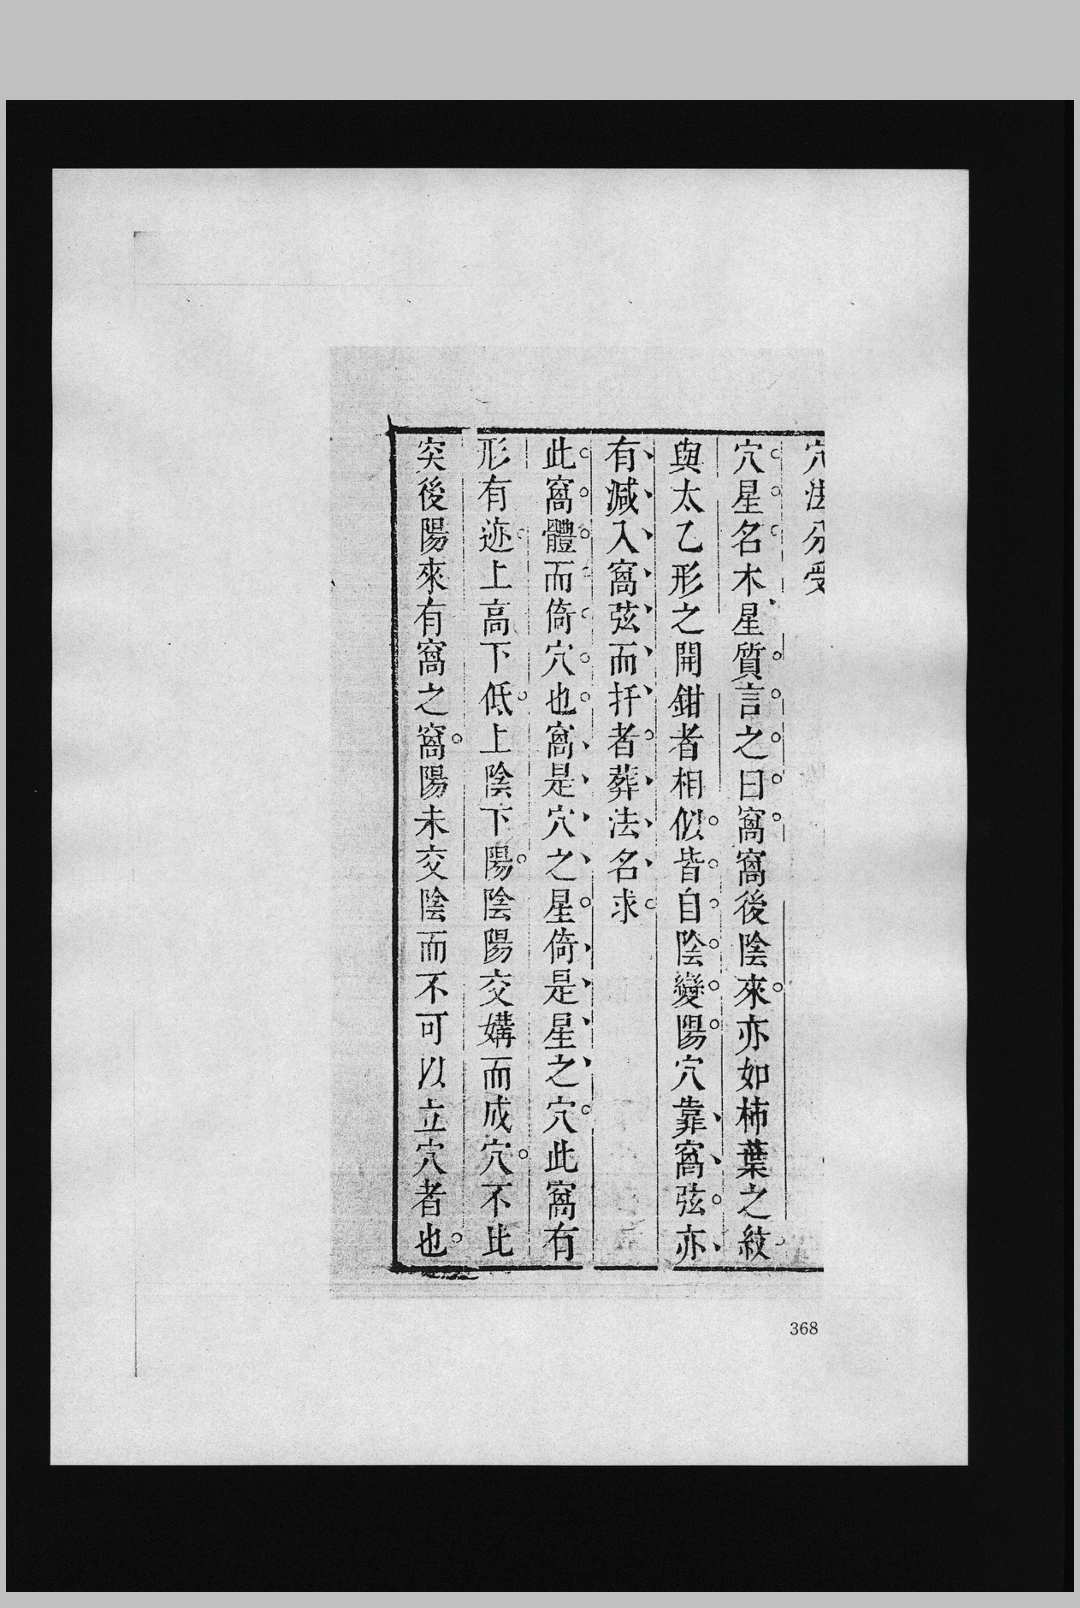 穴法分受
穴星名木星質言之曰窩窩後陰來亦如柿葉之紋
與太乙形之開鉗者相似皆自陰變陽穴靠窩弦亦
有減入窩弦而扦者葬法名求
此窩體而倚穴也窩是穴之星倚是星之穴此窩有
形有迹上高下低上陰下陽陰陽交媾而成穴不比
突後陽來有窩之窩陽未交陰而不可以立穴者也
368